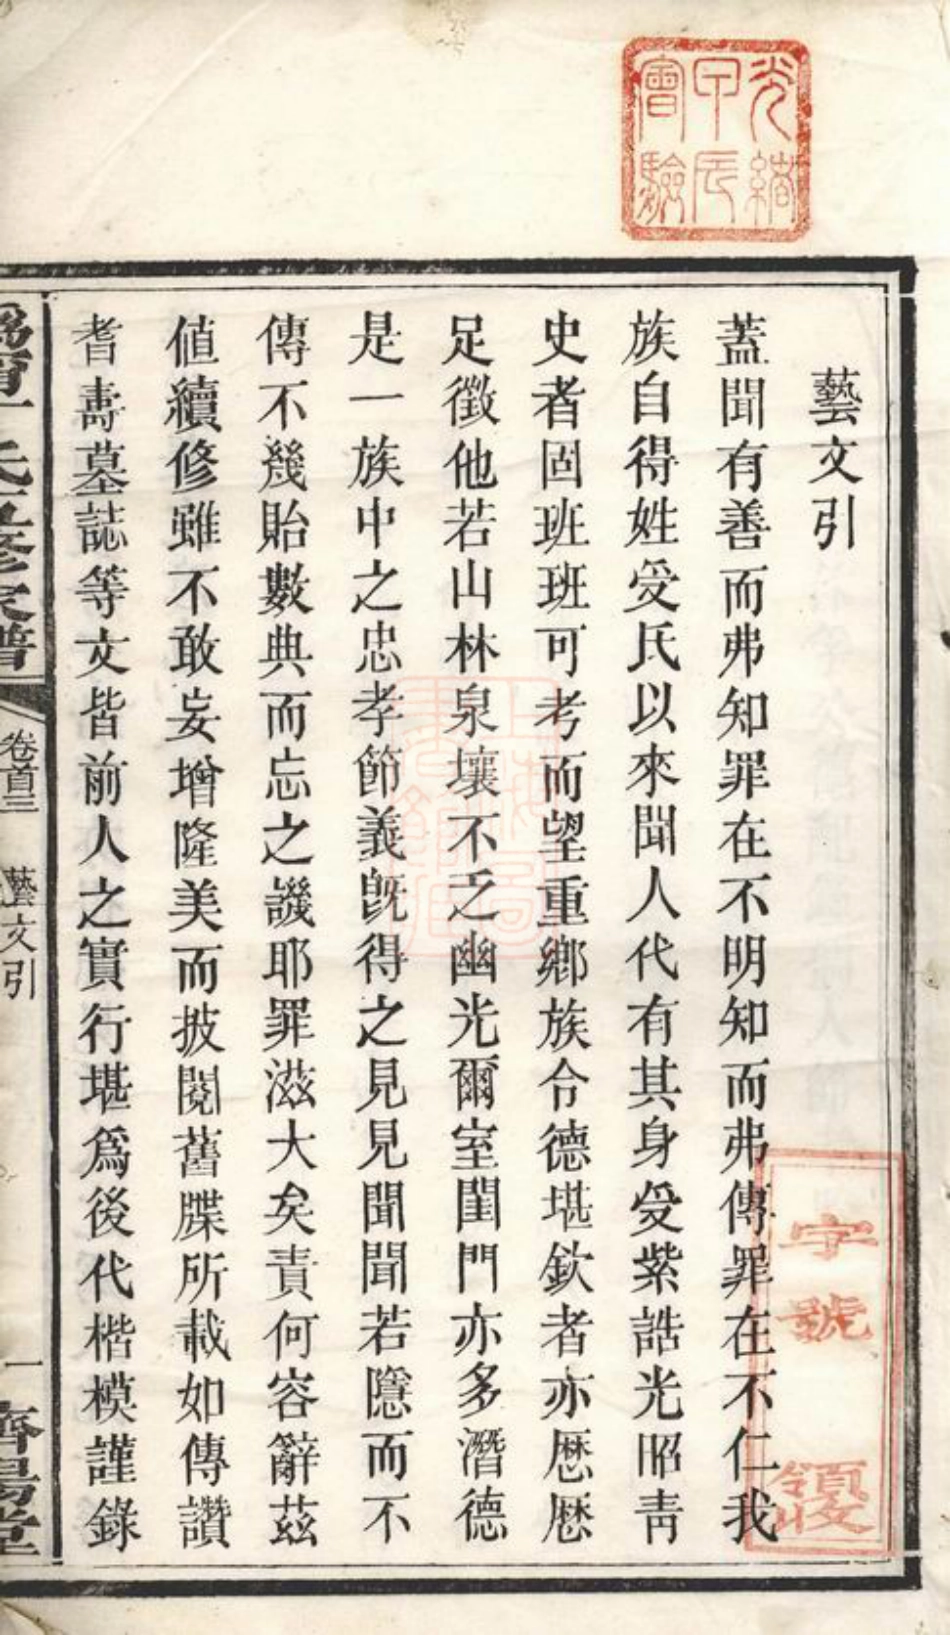 光緒
甲辰
會驗
藝文引
蓋聞有善而弗知罪在不明知而弗傳罪在不仁我
族自得姓受氏以來聞人代有其身受紫誥光昭青
史者固班班可考而望重鄉族令德堪欽者亦歷歷
足徵他若山林泉壤不乏幽光爾室閨門亦多潛德
是一族中之忠孝節義旣得之見見聞聞若隱而不
傳不幾貽數典而忘之譏耶罪滋大矣責何容辭茲
値續修雖不敢妄增隆美而披閱舊牒所載如傳讚
耆壽墓誌等文皆前人之實行堪爲後代楷模謹錄
氏五修家譜
卷首三
藝文引
一
濟陽堂
字號
領
上海圖
書館藏